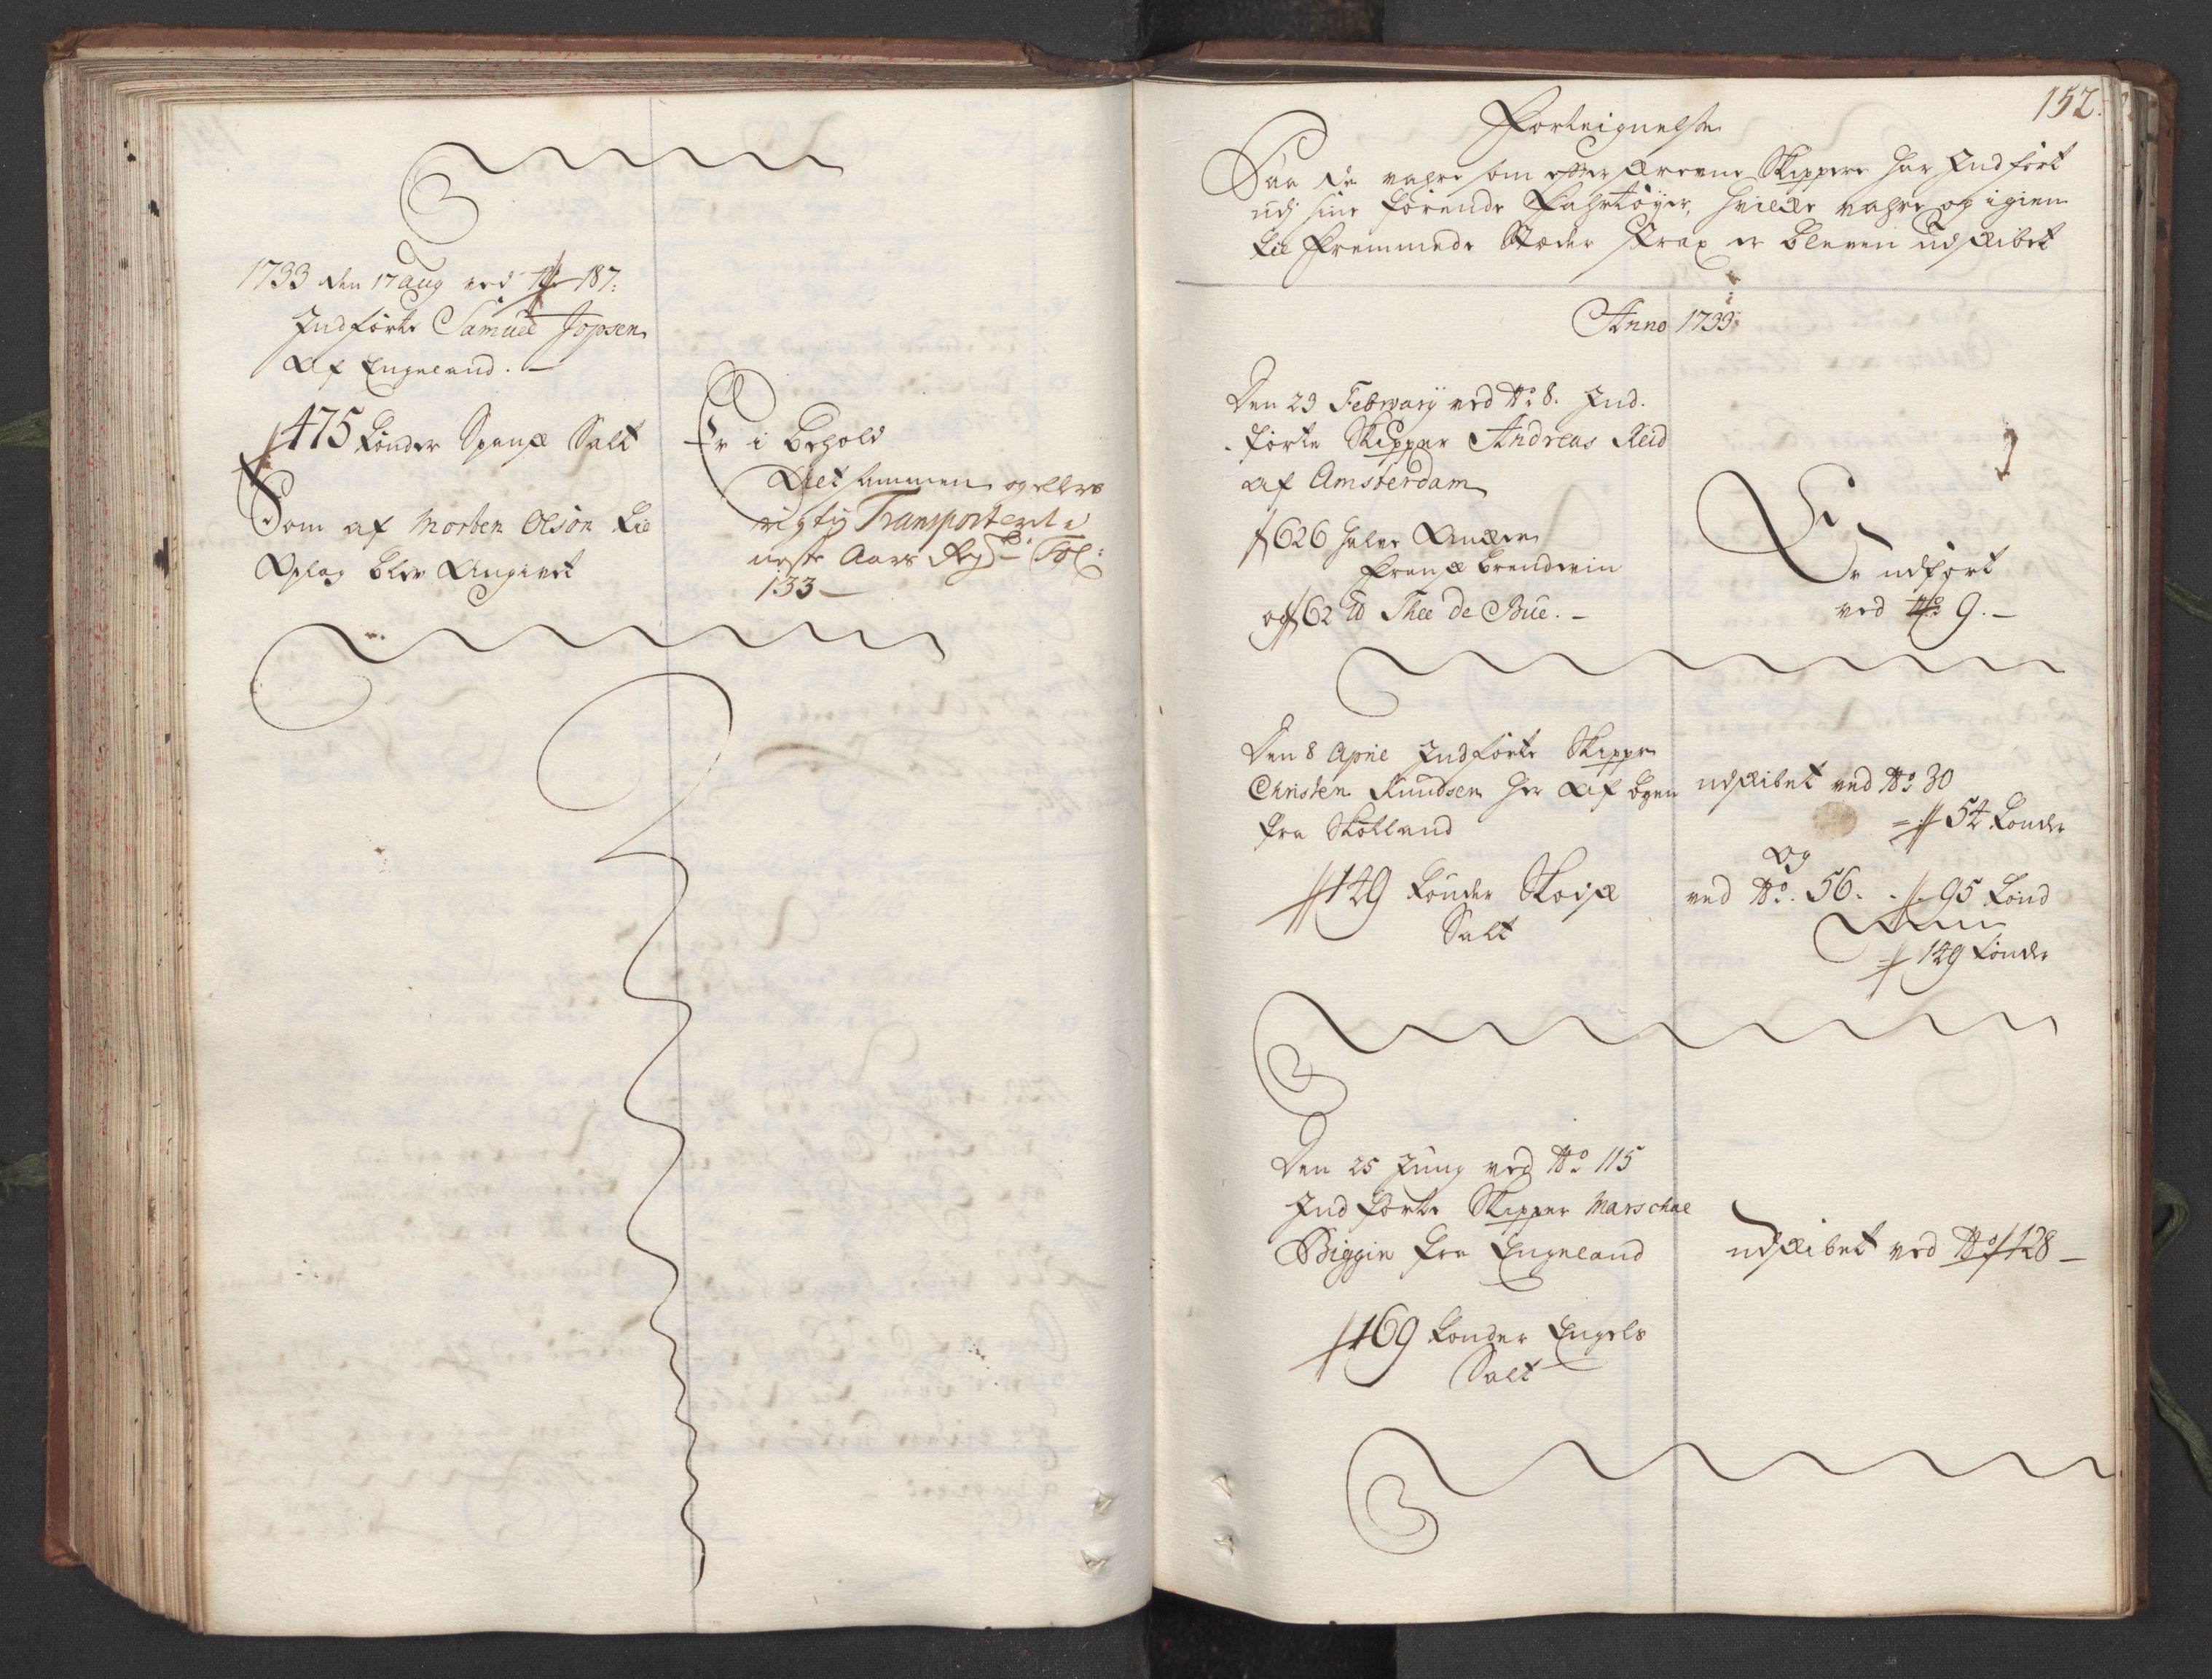 1733 den 17 Aug ved No 187:
Indførte Samuel Jopsen
Af Engeland. —
475 tønder Spansk Salt
Som af Morten Olsøn til
Oplag blev Angivet
Er i behold
Alt sammen og ellers
rigtig Transporteret i
neste Aars Regsb: Fol:
133 —
152.
Forteignelse
Paa de vahre som efterskrevne Skippere har Indført
udj sine førende Fahrtøyer, hvilke vahre og igien
til Fremmede Stæder strax er bleven udskibet
Anno 1733
Den 23 February ved No 8. Ind-
førte Skipper Andreas Reid
af Amsterdam
626 halve Ancker
Fransk brendevin
og 62 ℔ Thee de Bue. —
Er udført
ved No 9. —
Den 8 April Indførte Skipper
Christen Knudsen her af byen
fra Skotland
149 tønder Skotsk
Salt
udskibet ved No 30
= 54 tønder
og
ved No. 56. - 95 tønd
149 tønder
Den 25 Juny ved No 115
Indførte Skipper Marschal
Biggin fra Engeland
169 tønder Engels
Salt
udskibet ved No 128 —